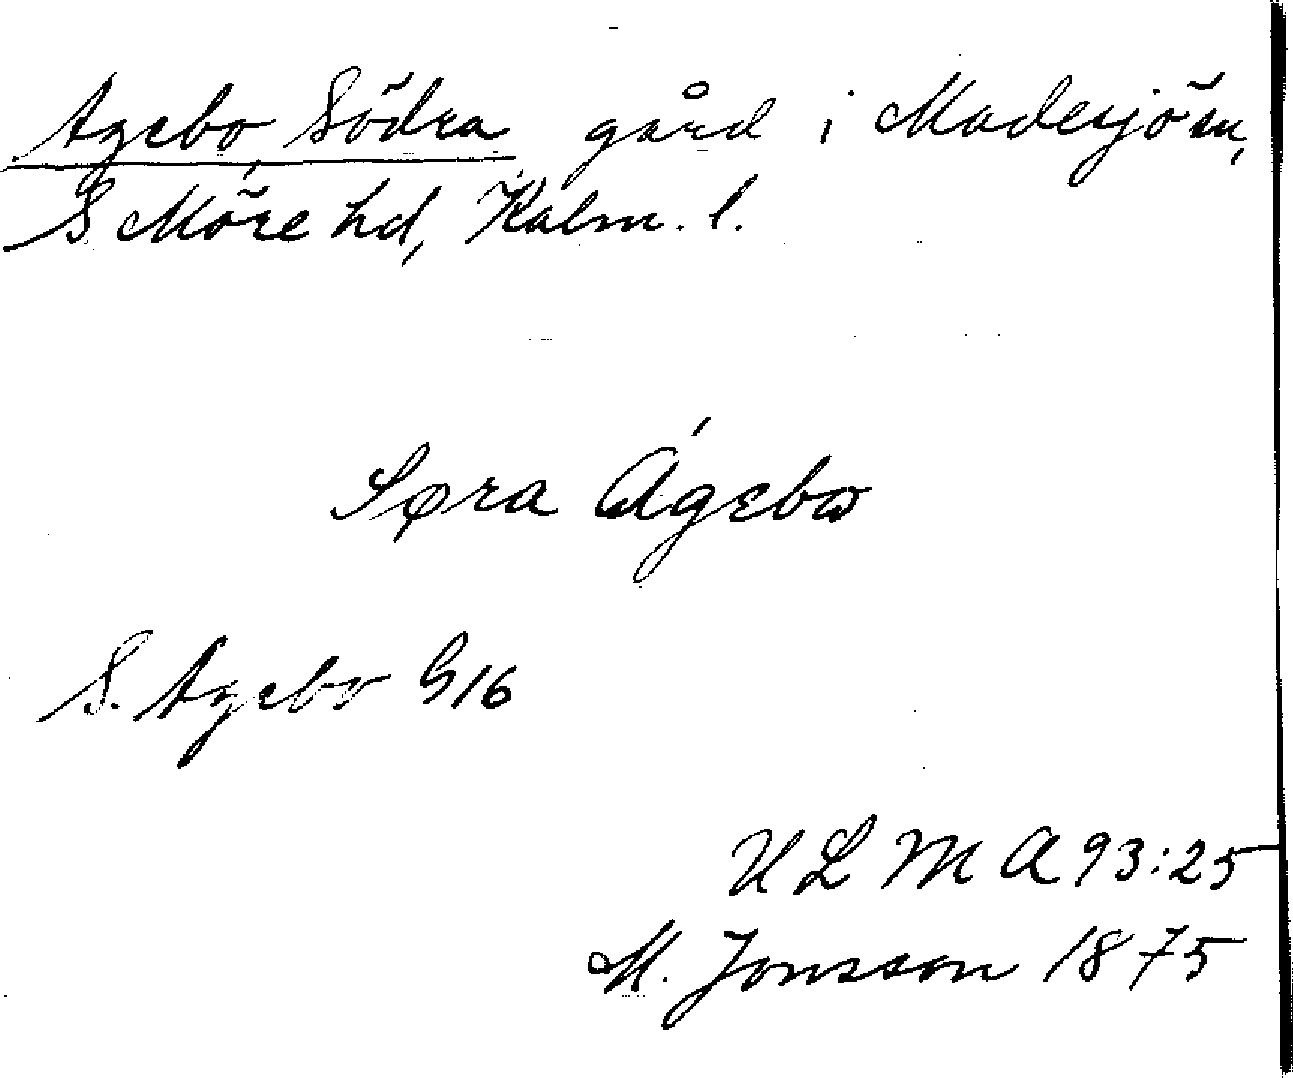 Agebo, Södra gård i Madesjö sn,
S Möre hd, Kalm. l.
Søra Ágebo
S. Agebo G16
ULMA 93:25
M. Jonsson 1875